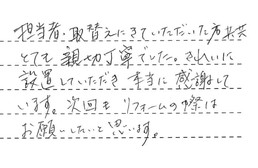 担当者・取替えにきていただいた方共共
とても親切丁寧でした。きれいに
設置していただき本当に感謝して
います。次回もリフォームの際は
お願いしたいと思います。